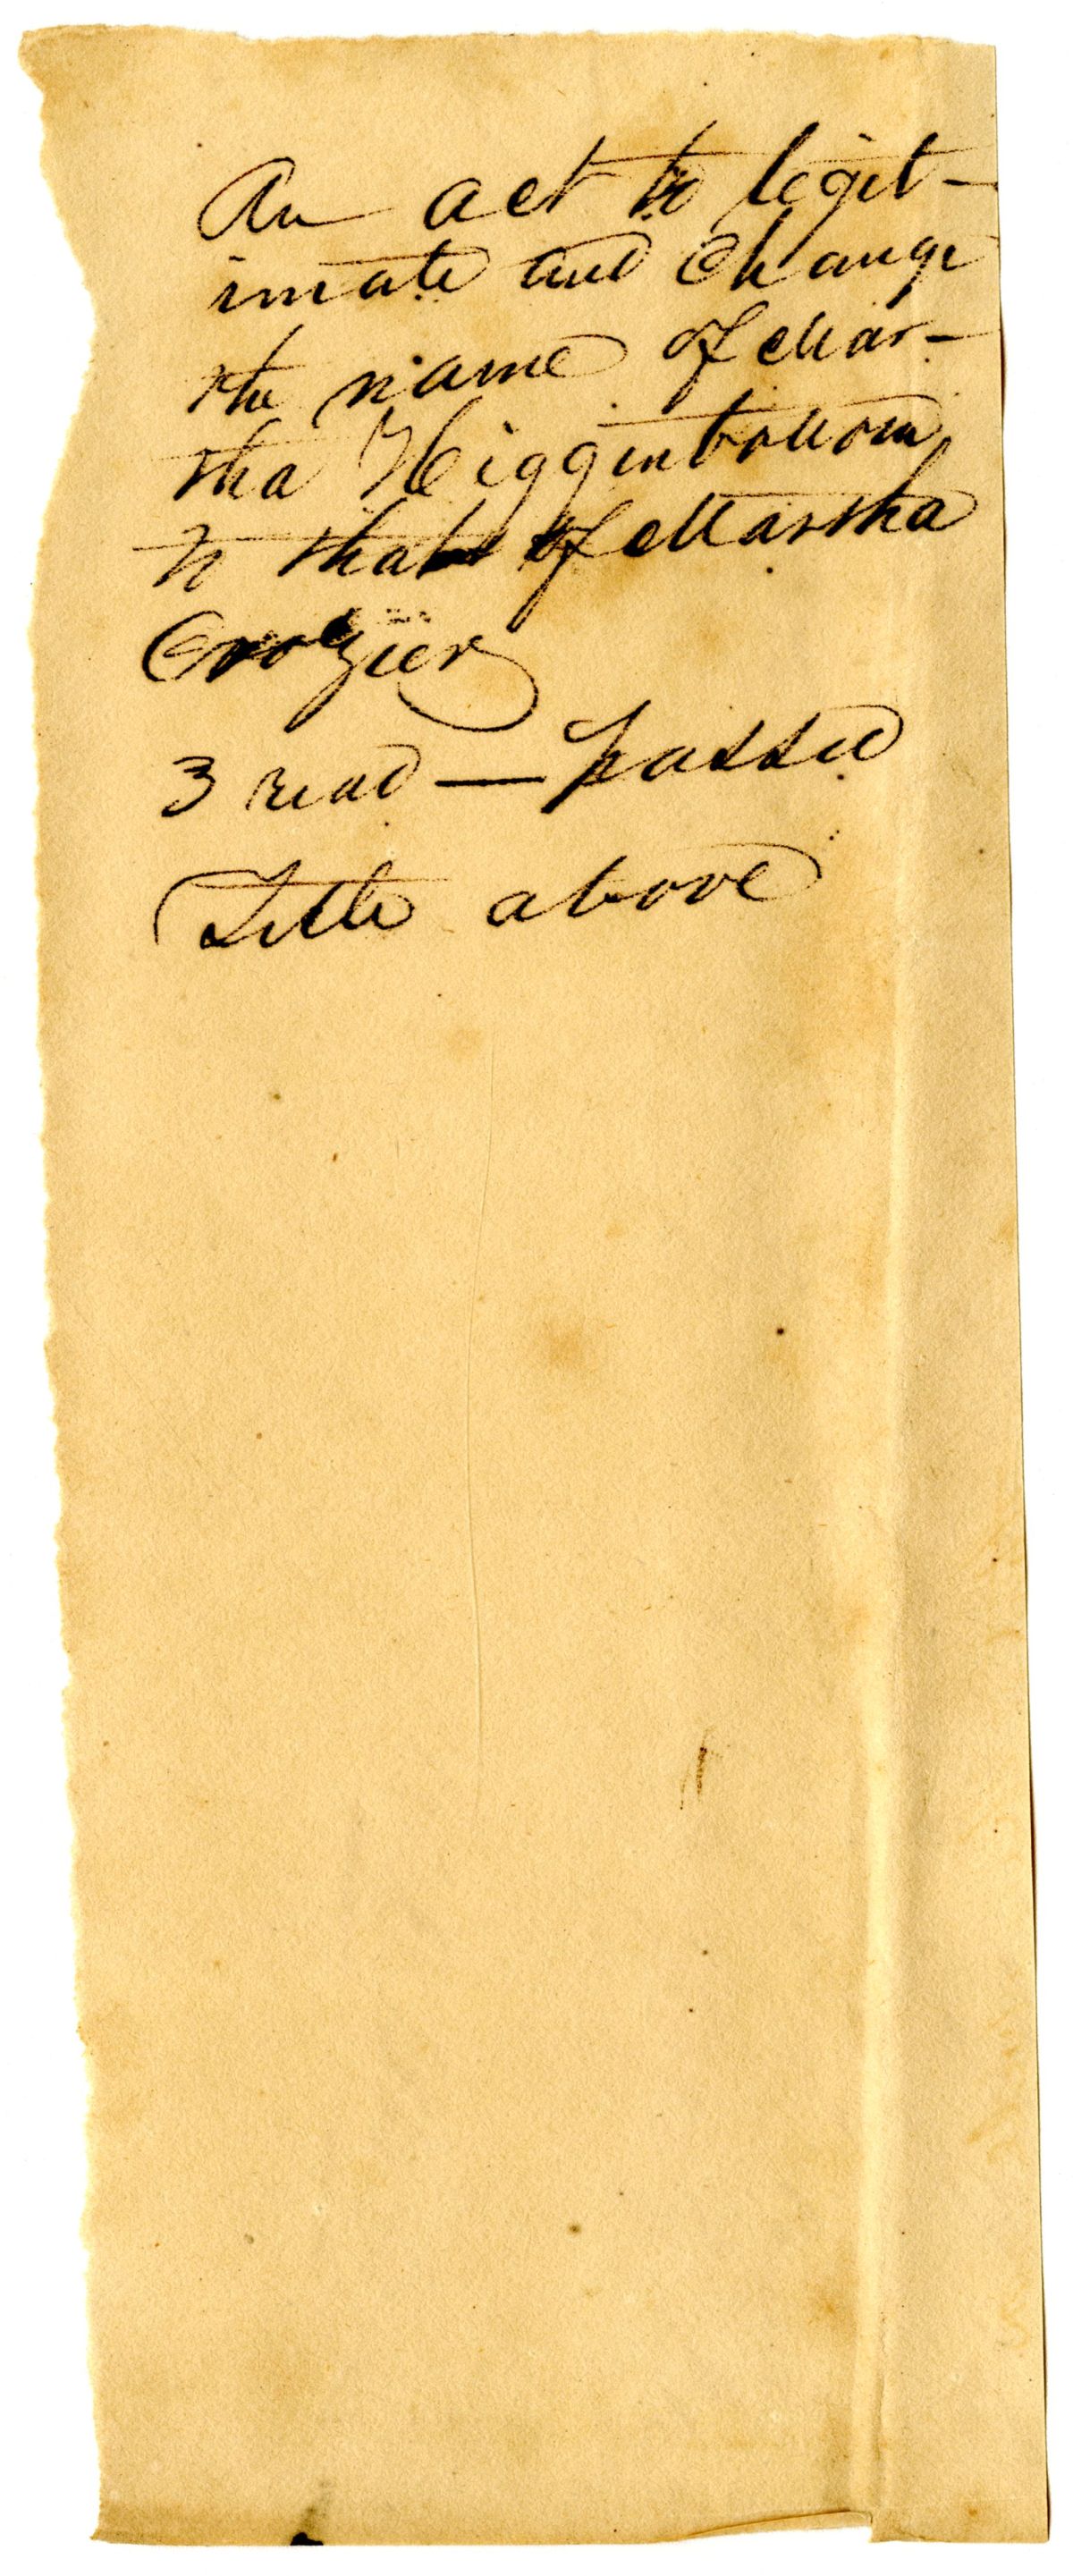 An act to legit-
imate and change
the name of Mar-
tha Higginbottom
to that of Martha
Crozier
3 read — passed
Title above